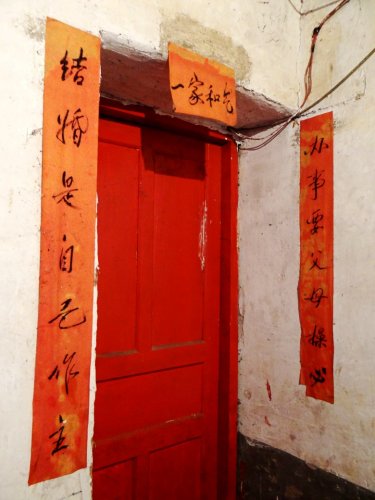 一家和气
结婚是自己作主
办事要父母操心